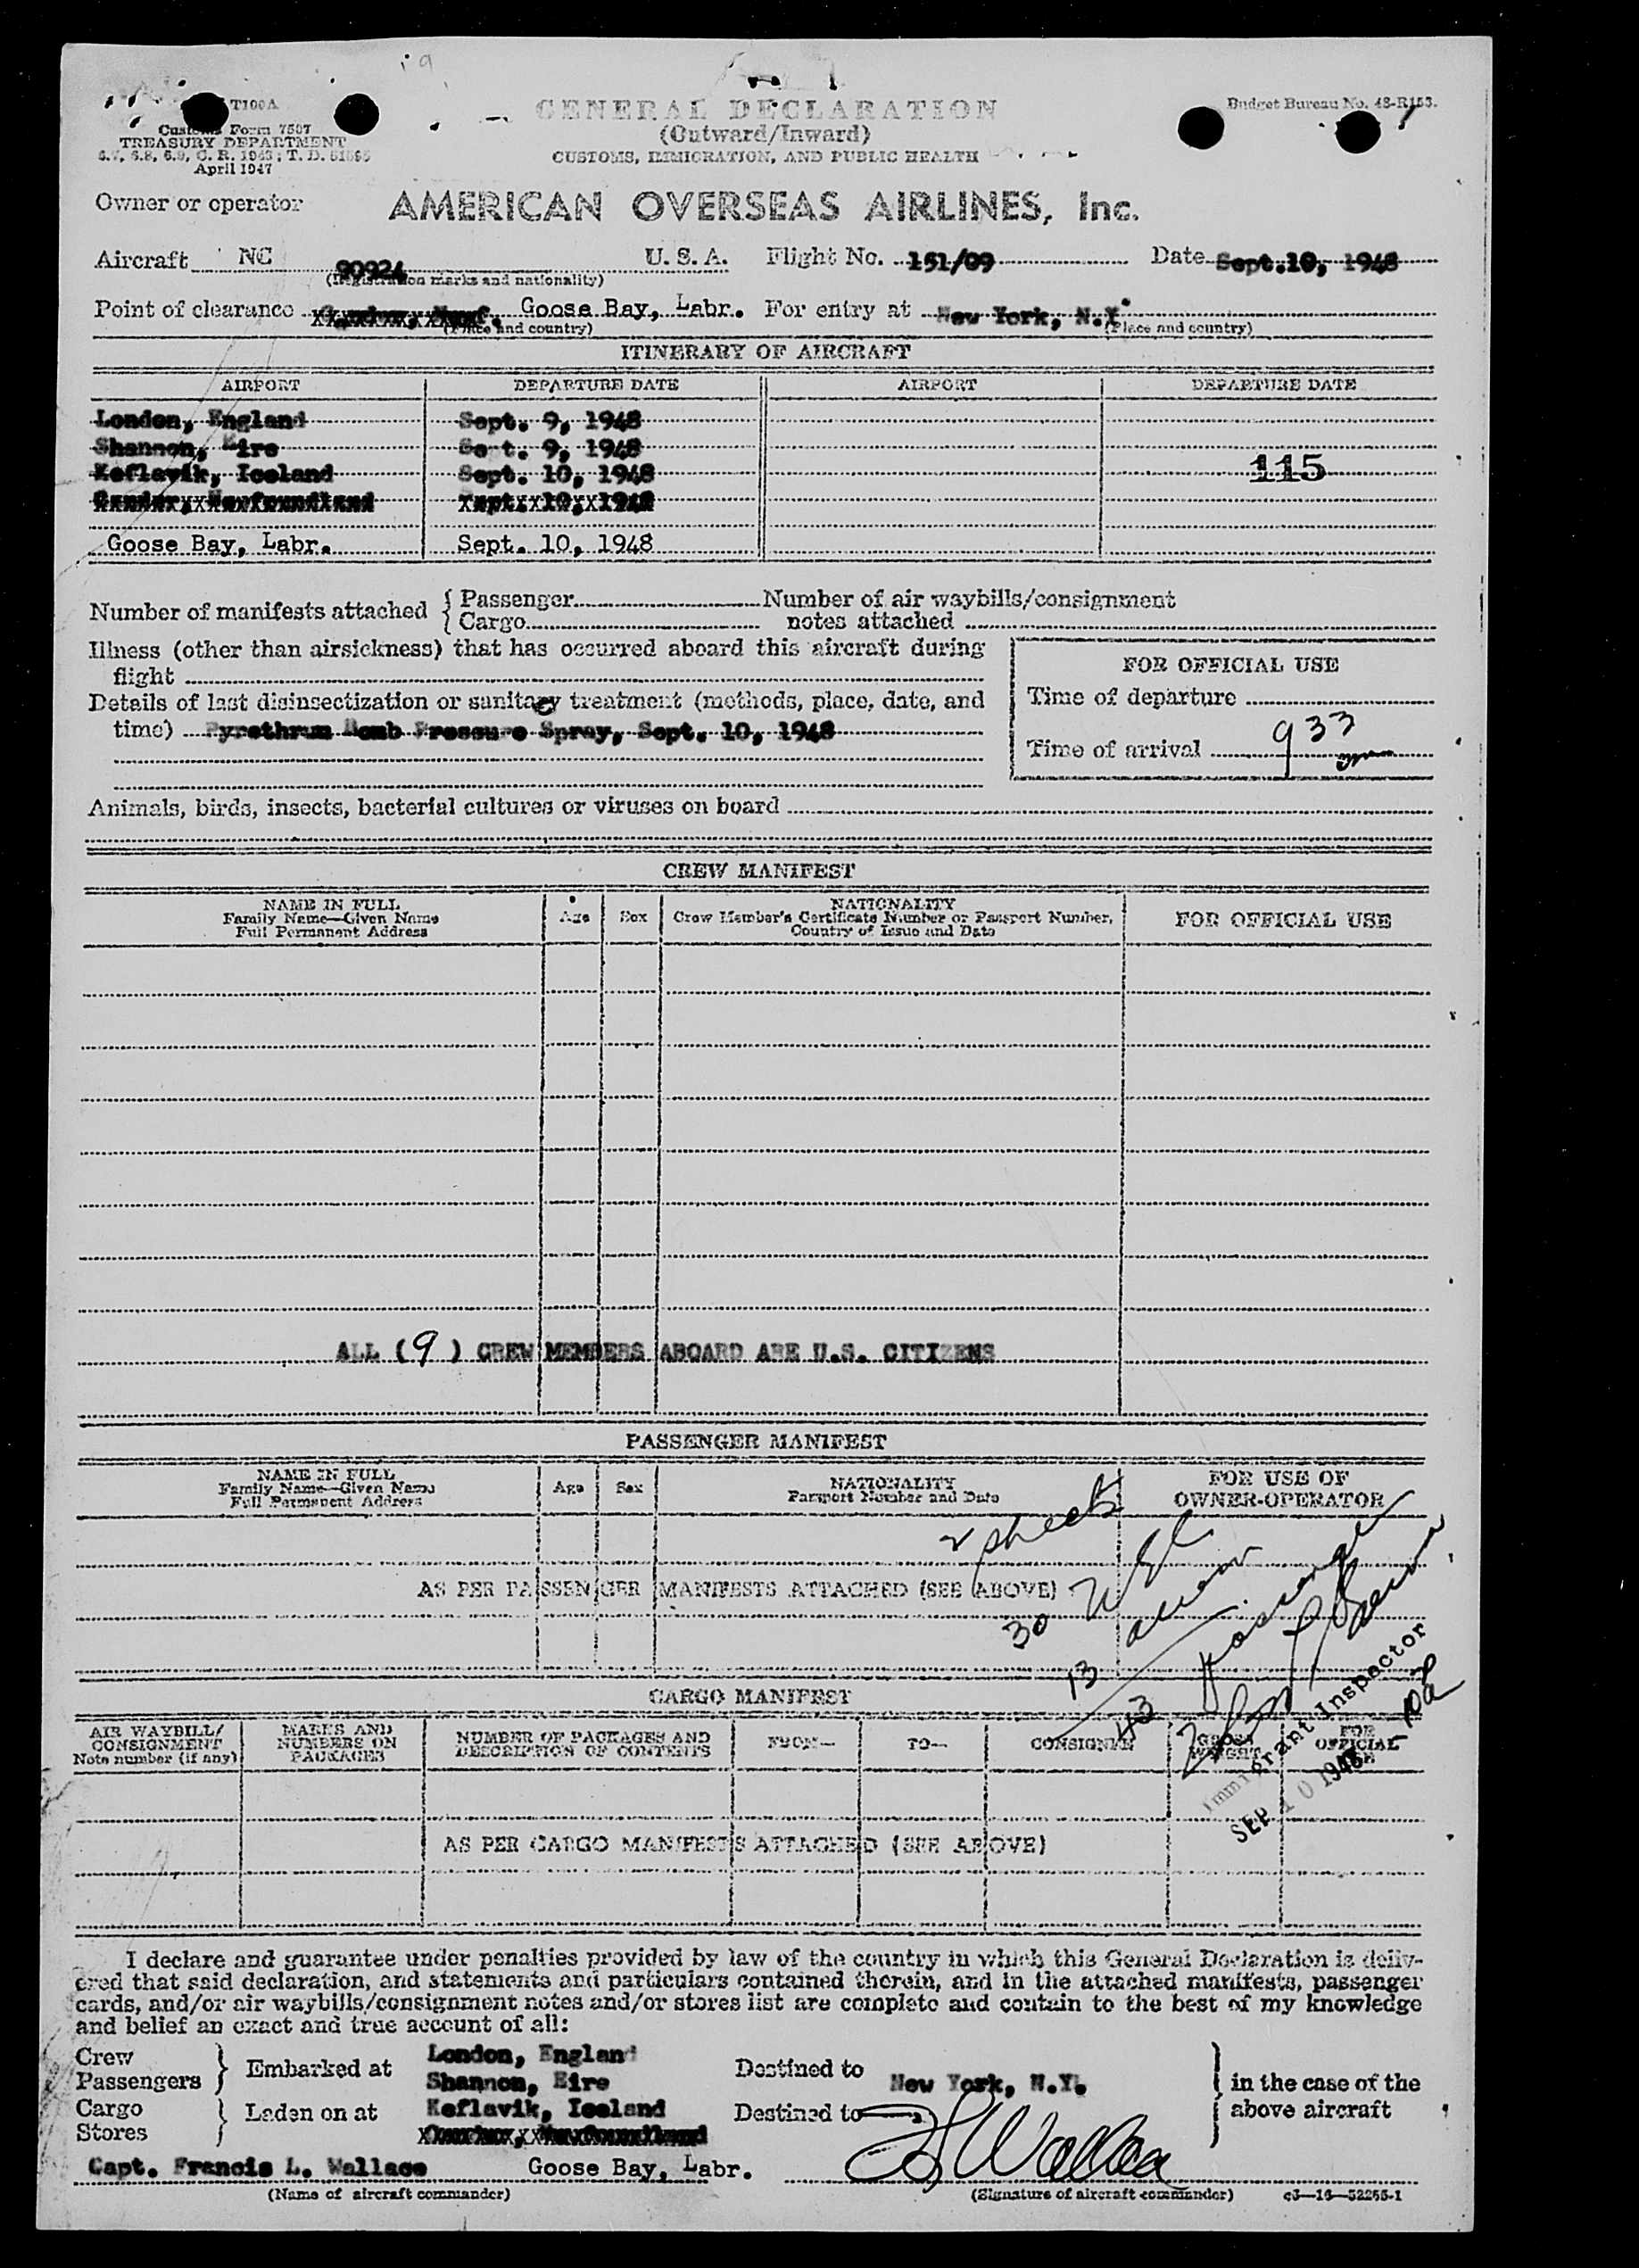 T100A
Customs Form 7507
TREASURY DEPARTMENT
April 1947
GENERAL DECLARATION
(Outward/Inward)
CUSTOMS, IMMIGRATION, AND PUBLIC HEALTH
Budget Bureau No. 48-R153.
Owner or operator AMERICAN OVERSEAS AIRLINES, Inc.
Aircraft NC 90924 U. S. A. Flight No. 151/09 Date Sept.10, 1948
(Registration marks and nationality)
Point of clearance Goose Bay, Labr. For entry at New York, N.Y.
(Place and country) (Place and country)
ITINERARY OF AIRCRAFT
AIRPORT DEPARTURE DATE AIRPORT DEPARTURE DATE
London, England Sept. 9, 1948
Shannon, Eire Sept. 9, 1948
Keflavik, Iceland Sept. 10, 1948 115
Gander, Newfoundland Sept. 10, 1948
Goose Bay, Labr. Sept. 10, 1948
Number of manifests attached { Passenger Number of air waybills/consignment
Cargo notes attached
Illness (other than airsickness) that has occurred aboard this aircraft during
flight
Details of last disinsectization or sanitary treatment (methods, place, date, and
time) Pyrethrum Bomb Pressure Spray, Sept. 10, 1948
FOR OFFICIAL USE
Time of departure
Time of arrival 933
Animals, birds, insects, bacterial cultures or viruses on board
CREW MANIFEST
NAME IN FULL
Family Name—Given Name
Full Permanent Address
Age Sex
NATIONALITY
Crew Member's Certificate Number or Passport Number,
Country of Issue and Date
FOR OFFICIAL USE
ALL (9) CREW MEMBERS ABOARD ARE U.S. CITIZENS
PASSENGER MANIFEST
NAME IN FULL
Family Name—Given Name
Full Permanent Address
Age Sex
NATIONALITY
Passport Number and Date
FOR USE OF
OWNER-OPERATOR
2 sheets
AS PER PASSENGER MANIFESTS ATTACHED (SEE ABOVE)
30 USC
13 alien
43 passenger
Immigrant Inspector
SEP 10 1948
CARGO MANIFEST
AIR WAYBILL/
CONSIGNMENT
Note number (if any)
MARKS AND
NUMBERS ON
PACKAGES
NUMBER OF PACKAGES AND
DESCRIPTION OF CONTENTS
FROM— TO— CONSIGNEE
GROSS
WEIGHT
FOR
OFFICIAL
USE
AS PER CARGO MANIFESTS ATTACHED (SEE ABOVE)
I declare and guarantee under penalties provided by law of the country in which this General Declaration is deliv-
ered that said declaration, and statements and particulars contained therein, and in the attached manifests, passenger
cards, and/or air waybills/consignment notes and/or stores list are complete and contain to the best of my knowledge
and belief an exact and true account of all:
Crew
Passengers } Embarked at London, England
Shannon, Eire Destined to New York, N.Y. } in the case of the
Cargo
Stores } Laden on at Keflavik, Iceland Destined to above aircraft
Gander, Newfoundland
Capt. Francis L. Wallace Goose Bay, Labr. F L Wallace
(Name of aircraft commander) (Signature of aircraft commander) c3—16—52255-1